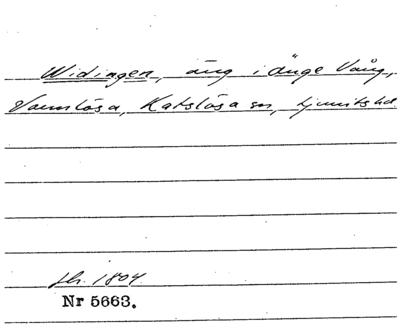 Widingen, äng i Änge Vång,
Vannlösa, Katslösa sn, Ljunits hd
sk. 1804.
Nr 5663.